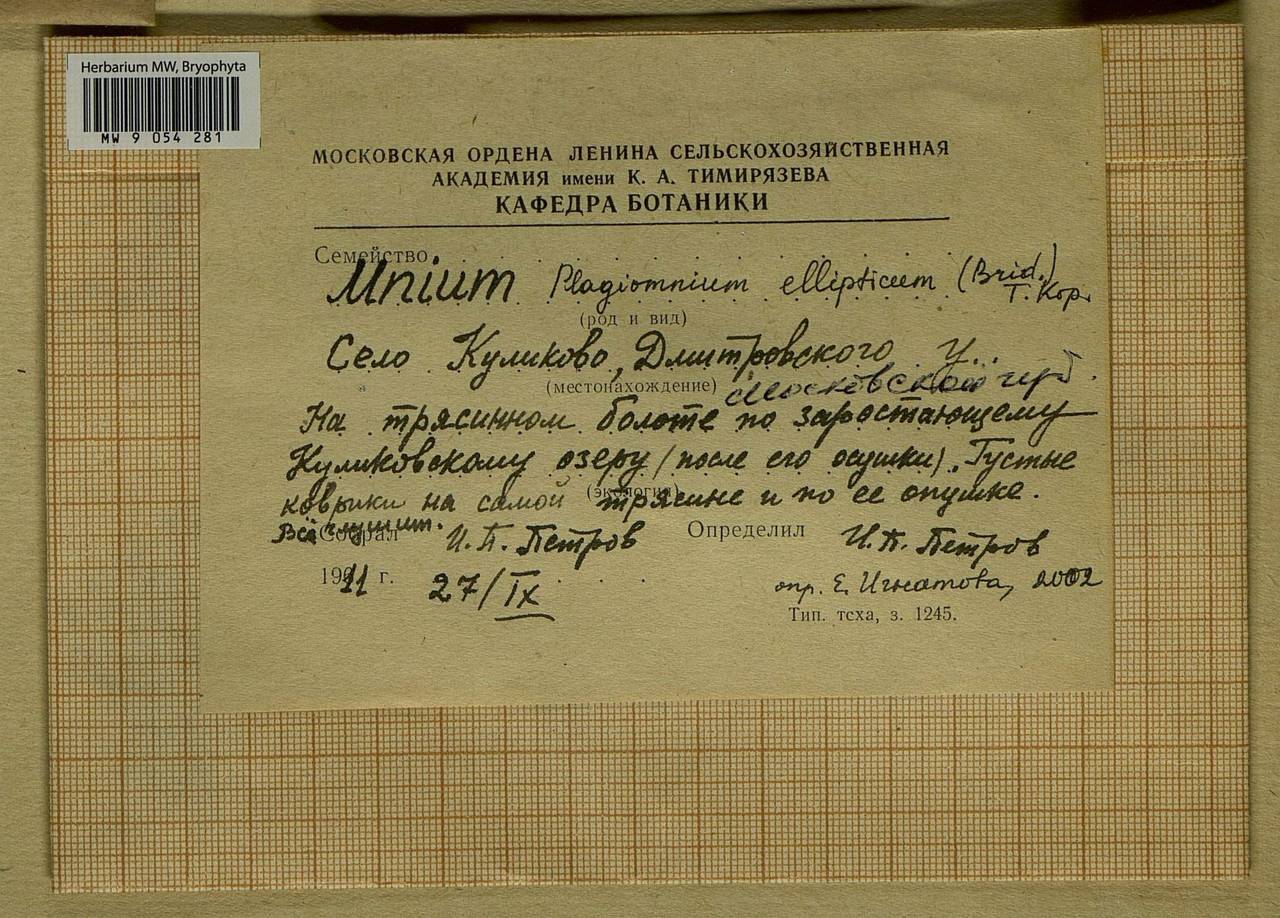 Herbarium MW, Bryophyta
MW 9 054 281
МОСКОВСКАЯ ОРДЕНА ЛЕНИНА СЕЛЬСКОХОЗЯЙСТВЕННАЯ
АКАДЕМИЯ имени К. А. ТИМИРЯЗЕВА
КАФЕДРА БОТАНИКИ
Семейство
Mnium Plagiomnium ellipticum (Brid.) T. Kop.
(род и вид)
Село Куликово, Дмитровского у.
(местонахождение) Московской губ.
На трясинном болоте по заростающему
Куликовскому озеру (после его осушки). Густые
коврики на самой трясине и по ее опушке.
(экология)
Всё глушит.
Собрал И. П. Петров Определил И. П. Петров
1911 г. 27/IX опр. Е. Игнатова, 2002
Тип. тсха, з. 1245.